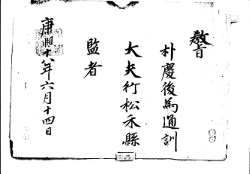 敎旨
朴慶後爲通訓
大夫行松禾縣
監者
康熙十八年六月十四日